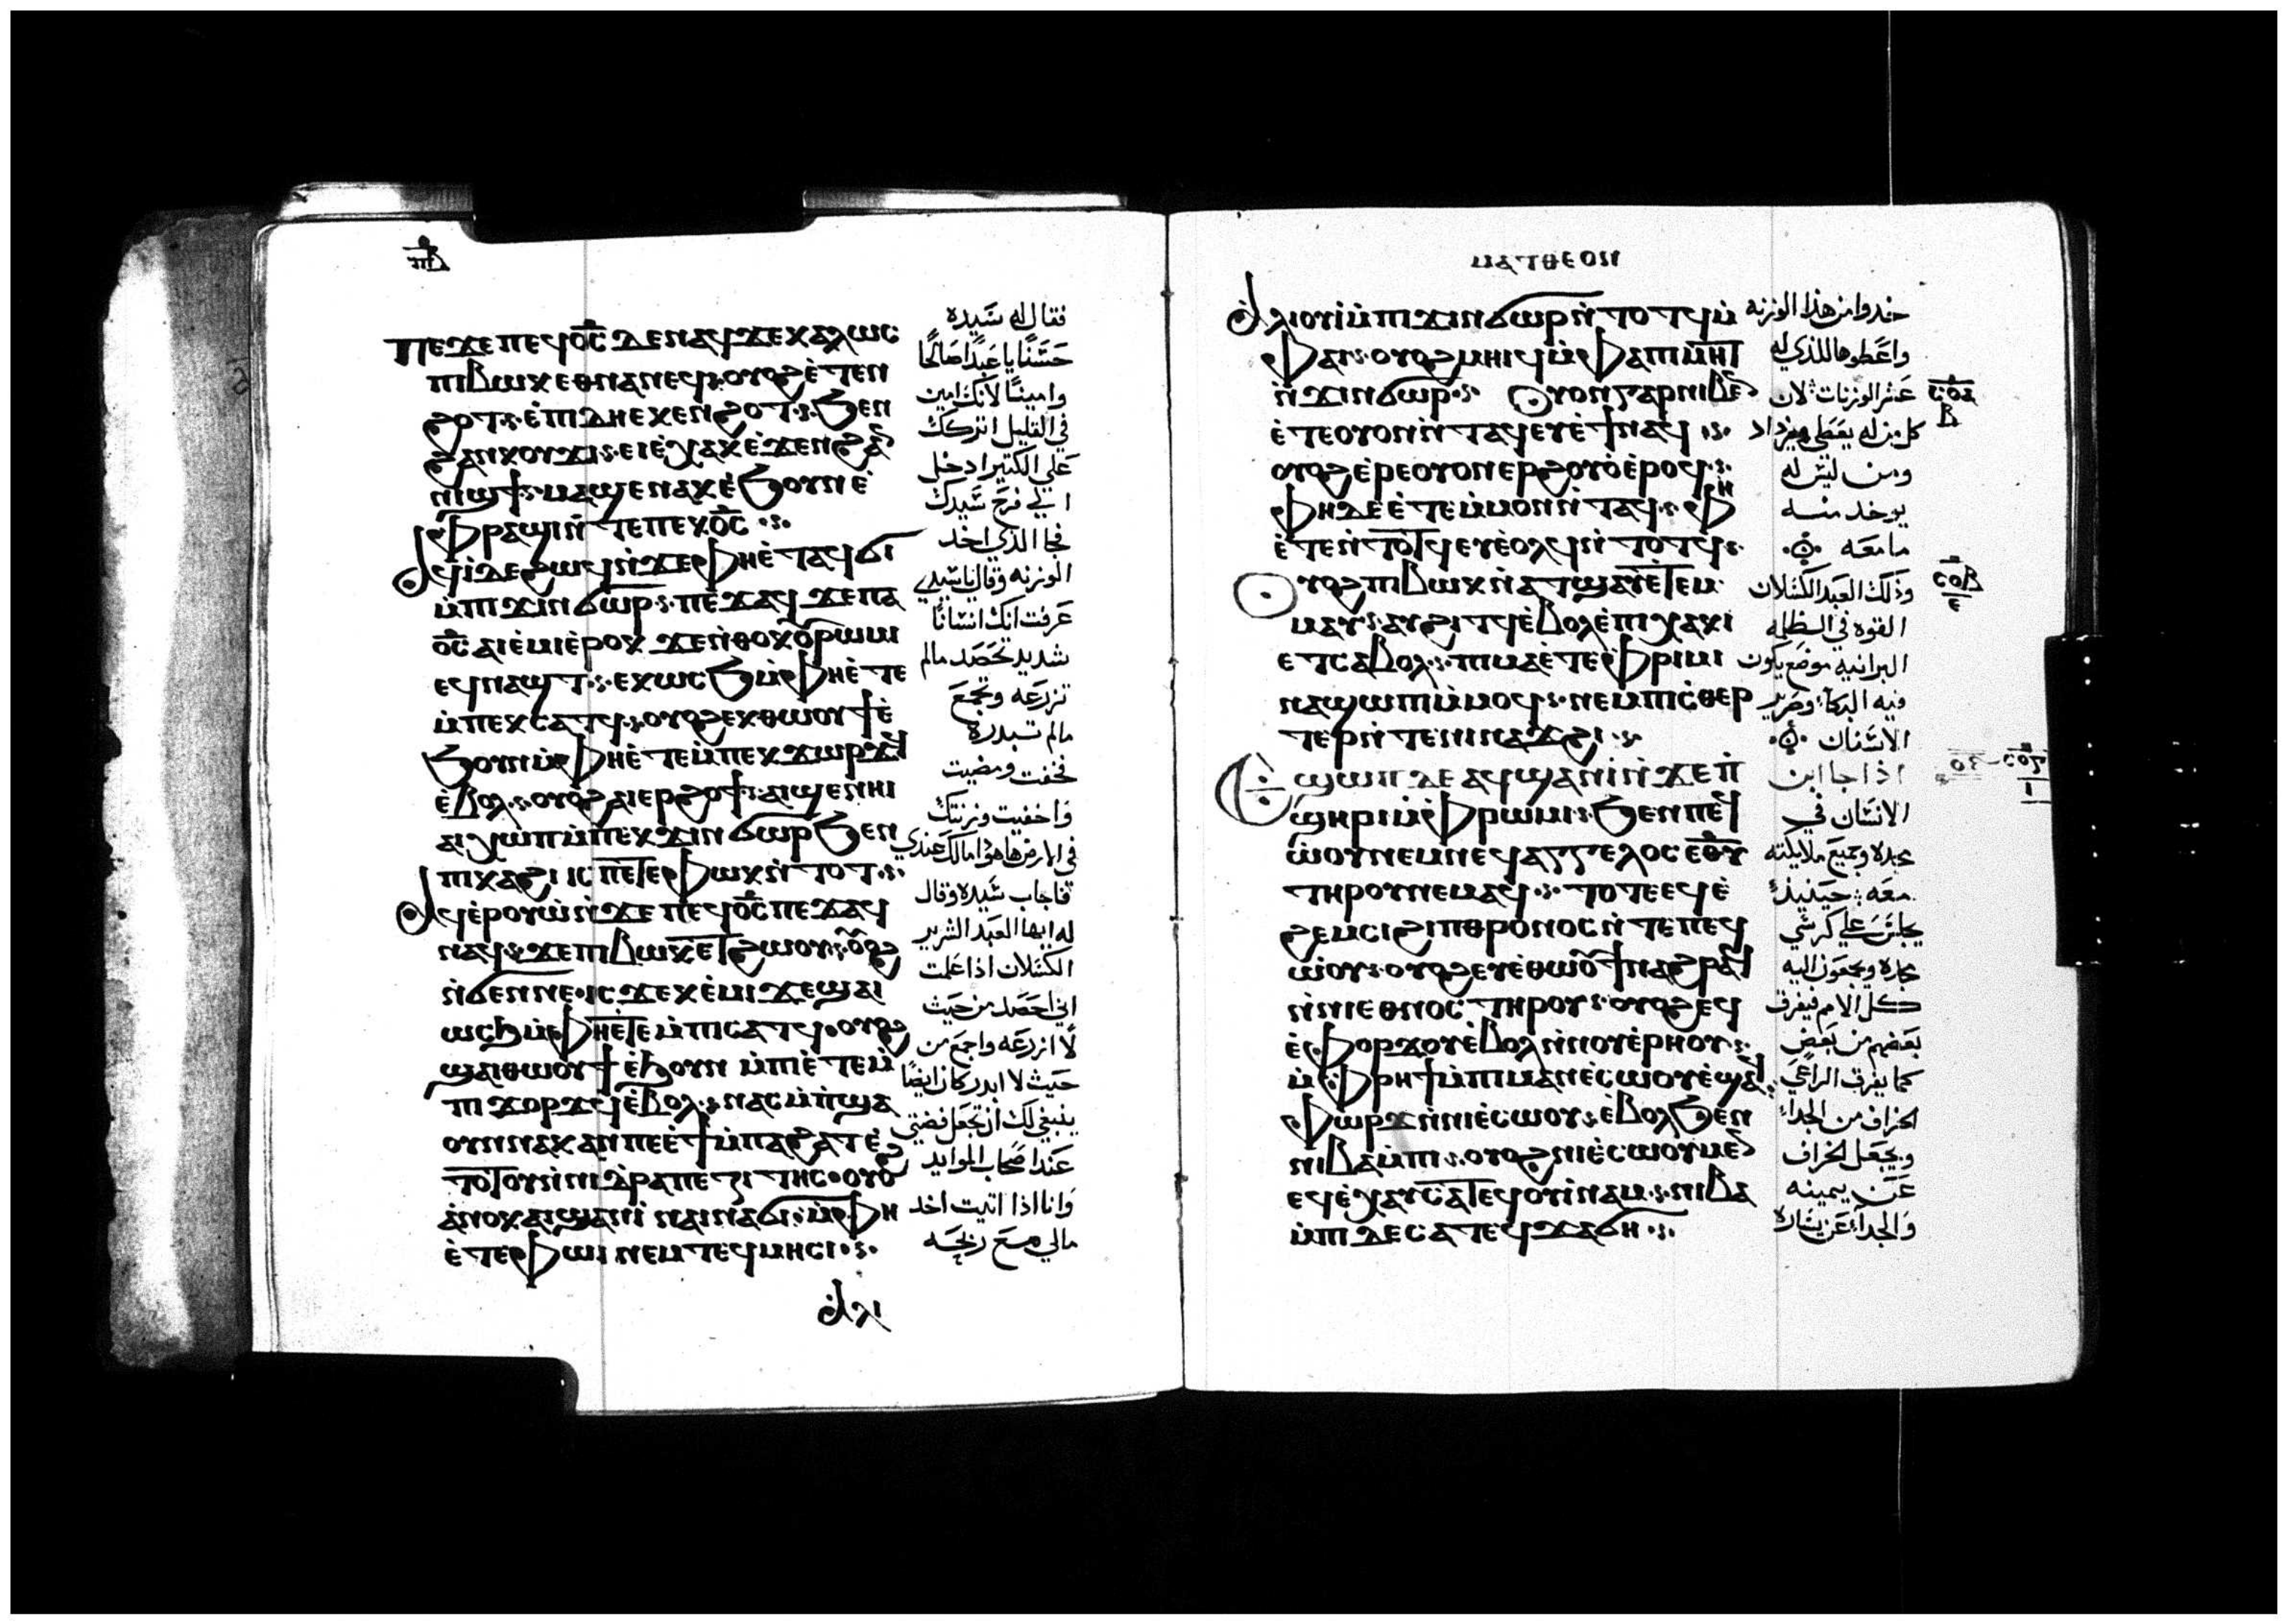 ⲡⲉϫⲉ ⲡⲉϥⲟ̅ⲥ̅ ⲇⲉ ⲛⲁϥ ϫⲉ ⲕⲁⲗⲱⲥ
ⲡⲓⲃⲱⲕ ⲉⲑⲛⲁⲛⲉϥ ⲟⲩⲟϩ ⲉ̀ⲧⲉⲛ
ϩⲟⲧ ⲉ̀ⲡⲓⲇⲏ ⲕⲉⲛϩⲟⲧ ϧⲉⲛ
ϩⲁⲛⲕⲟⲩϫⲓ ⲉⲓⲉ̀ⲭⲁⲕ ⲉ̀ϫⲉⲛ ϩⲁ̅
ⲛⲓϣϯ ⲙⲁϣⲉⲛⲁⲕ ⲉ̀ϧⲟⲩⲛ ⲉ̀
ⲫⲣⲁϣⲓ ⲛ̀ⲧⲉ ⲡⲉⲕⲟ̅ⲥ̅
ⲁϥⲓ̀ ⲇⲉ ϩⲱϥ ⲛ̀ϫⲉ ⲫⲏ ⲉ̀ⲧⲁϥϭⲓ
ⲙ̀ⲡⲓϫⲓⲛϭⲱⲣ ⲡⲉϫⲁϥ ϫⲉ ⲡⲁ
ⲟ̅ⲥ̅ ⲁⲓⲉ̀ⲙⲓ ⲉ̀ⲣⲟⲕ ϫⲉ ⲛ̀ⲑⲟⲕ ⲟⲩⲣⲱⲙⲓ
ⲉϥⲛⲁϣⲧ ⲉⲕⲱⲥϧ ⲙ̀ⲫⲏ ⲉ̀ⲧⲉ
ⲙ̀ⲡⲉⲕⲥⲁⲧϥ ⲟⲩⲟϩ ⲉⲕⲑⲱⲟⲩϯ ⲉ̀
ϧⲟⲩⲛ ⲙ̀ⲫⲏ ⲉ̀ⲧⲉ ⲙ̀ⲡⲉⲕϫⲱⲣϥ
ⲉ̀ⲃⲟⲗ ⲟⲩⲟϩ ⲁⲓⲉⲣϩⲟϯ ⲁⲓϣⲉⲛⲏⲓ
ⲁⲓⲭⲱⲡ ⲙ̀ⲡⲉⲕϫⲓⲛϭⲱⲣ ϧⲉⲛ
ⲡⲓⲕⲁϩⲓ ⲓⲥ ⲡⲉⲧⲉ ⲫⲱⲕ ⲛ̀ⲧⲟⲧ
ⲁϥⲉ̀ⲣⲟⲩⲱ̀ ⲛ̀ϫⲉ ⲡⲉϥⲟ̅ⲥ̅ ⲡⲉϫⲁϥ
ⲛⲁϥ ϫⲉ ⲡⲓⲃⲱⲕ ⲉⲧϩⲱⲟⲩ ⲟⲩⲟϩ
ⲛ̀ϭⲉⲛⲛⲉ ⲓⲥϫⲉ ⲕⲉ̀ⲙⲓ ϫⲉ ϣⲁⲓ
ⲱⲥϧ ⲙ̀ⲫⲏ ⲉⲧⲉ ⲙ̀ⲡⲓⲥⲁⲧϥ ⲟⲩⲟϩ
ϣⲁⲓⲑⲱⲟⲩϯ ⲉ̀ϧⲟⲩⲛ ⲙ̀ⲡⲉ̀ⲧⲉⲙ̀
ⲡⲓϫⲟⲣϫϥ ⲉ̀ⲃⲟⲗ ⲛⲁⲥⲙ̀ⲡϣⲁ
ⲟⲩⲛ ⲛⲁⲕ ⲁⲛ ⲡⲉ ⲉ̀ϯ ⲙ̀ⲡⲁϩⲁⲧ ⲉ̀
ⲧⲟⲧⲟⲩ ⲛ̀ⲛⲓⲧⲣⲁⲡⲉⲍⲓⲧⲏⲥ ⲟⲩⲟϩ
ⲁ̀ⲛⲟⲕ ⲁⲓϣⲁⲛⲓ̀ ⲛⲁⲓⲛⲁϭⲓ ⲙ̀ⲫⲏ
ⲉ̀ⲧⲉ ⲫⲱⲓ ⲛⲉⲙ ⲧⲉϥⲙⲏⲥⲓ
ⲁⲗⲓ
فقال له سيده
حسنًا يا عبدًا صالحًا
وامينًا لانك امين
في القليل اتركك
علي الكتير ادخل
الي فرح سيدك
فجا الذي اخد
الوزنه وقال يا سيدي
عرفت انك انسانًا
شديد تحصد مالم
تزرعه وتجمع
مالم تبدره
فخفت ومضيت
واخفيت وزنتك
في الارض هاهوذا مالك عندي
فاجاب سيده وقال
له ايها العبد الشرير
الكسلان اذا علمت
اني احصد من حيث
لا ازرعه واجمع من
حيث لا ابدر كان ايضًا
ينبغي لك ان تجعل فضتي
عند اصحاب الموايد
وانا اذا اتيت اخد
مالي مع ربحه
ⲙⲁⲧⲑⲉⲟⲛ
ⲁⲗⲓⲟⲩⲓ̀ ⲙ̀ⲡⲓϫⲓⲛϭⲱⲣ ⲛ̀ⲧⲟⲧϥ ⲙ̀
ⲫⲁⲓ ⲟⲩⲟϩ ⲙⲏⲓϥ ⲙ̀ⲫⲁ ⲡⲓⲙⲏⲧ
ⲛ̀ϫⲓⲛϭⲱⲣ ⲟⲩⲟⲛ ⲅⲁⲣ ⲛⲓⲃⲉⲛ
ⲉ̀ⲧⲉ ⲟⲩⲟⲛ ⲛ̀ⲧⲁϥ ⲉⲩⲉ̀ϯ ⲛⲁϥ
ⲟⲩⲟϩ ⲉ̀ⲣⲉ ⲟⲩⲟⲛ ⲉⲣϩⲟⲩⲟ̀ ⲉ̀ⲣⲟϥ
ⲫⲏ ⲇⲉ ⲉ̀ⲧⲉ ⲙ̀ⲙⲟⲛ ⲛ̀ⲧⲁϥ ⲫⲏ
ⲉ̀ⲧⲉⲛ̀ⲧⲟⲧϥ ⲉⲩⲉ̀ⲟⲗϥ ⲛ̀ⲧⲟⲧϥ
ⲟⲩⲟϩ ⲡⲓⲃⲱⲕ ⲛ̀ⲁⲧϣⲁⲩ ⲉ̀ⲧⲉⲙ
ⲙⲁⲩ ⲁⲩϩⲓⲧϥ ⲉ̀ⲃⲟⲗ ⲉ̀ⲡⲓⲭⲁⲕⲓ
ⲉⲧⲥⲁⲃⲟⲗ ⲡⲓⲙⲁ ⲉ̀ⲧⲉ ⲫⲣⲓⲙⲓ
ⲛⲁϣⲱⲡⲓ ⲙ̀ⲙⲟϥ ⲛⲉⲙ ⲡⲓⲥ̀ⲑⲉⲣ
ⲧⲉⲣ ⲛ̀ⲧⲉ ⲛⲓⲛⲁϫϩⲓ
ⲉ̀ϣⲱⲡ ⲇⲉ ⲁϥϣⲁⲛⲓ̀ ⲛ̀ϫⲉ ⲡ̀
ϣⲏⲣⲓ ⲙ̀ⲫⲣⲱⲙⲓ ϧⲉⲛ ⲡⲉϥ
ⲱ̀ⲟⲩ ⲛⲉⲙ ⲛⲉϥⲁⲅⲅⲉⲗⲟⲥ ⲉ̅ⲑ̅ⲩ̅
ⲧⲏⲣⲟⲩ ⲛⲉⲙⲁϥ ⲧⲟⲧⲉ ⲉϥⲉ̀
ϩⲉⲙⲥⲓ ϩⲓ ⲡⲑⲣⲟⲛⲟⲥ ⲛ̀ⲧⲉ ⲡⲉϥ
ⲱ̀ⲟⲩ ⲟⲩⲟϩ ⲉⲩⲉ̀ⲑⲱⲟⲩϯ ⲛⲁϩⲣⲁϥ
ⲛ̀ⲛⲓⲉⲑⲛⲟⲥ ⲧⲏⲣⲟⲩ ⲟⲩⲟϩ ⲉϥ
ⲉ̀ⲫⲟⲣϫⲟⲩ ⲉ̀ⲃⲟⲗ ⲛ̀ⲛⲟⲩⲉ̀ⲣⲏⲟⲩ
ⲙ̀ⲫⲣⲏϯ ⲙ̀ⲡⲓⲙⲁⲛⲉ̀ⲥⲱⲟⲩ ⲉ̀ϣⲁϥ
ⲫⲱⲣϫ ⲛ̀ⲛⲓⲉ̀ⲥⲱⲟⲩ ⲉ̀ⲃⲟⲗ ϧⲉⲛ
ⲛⲓⲃⲁⲙ̀ⲡⲓ ⲟⲩⲟϩ ⲛⲓⲉ̀ⲥⲱⲟⲩ ⲙⲉⲛ
ⲉϥⲉ̀ⲭⲁⲩ ⲥⲁⲧⲉϥⲟⲩⲓ̀ⲛⲁⲙ ⲛⲓⲃⲁ
ⲙ̀ⲡⲓ ⲇⲉ ⲥⲁⲧⲉϥϫⲁϭⲏ
خدوا من هذا الوزنه
واعطوها للذي له
عشر الوزنات لان
كل من له يعطي ويزاد
ومن ليس له
يوخد منه
ما معه
وذلك العبد الكسلان
القوه في الظلمه
البرانيه موضع يكون
فيه البكآ وصرير
الاسنان
اذا جا ابن
الانسان في
مجده وجميع ملايكته
معه حينيذٍ
يجلس علي كرسي
مجده ويجمعون اليه
كل الامم فيفرق
بعضهم من بعض
كما يفرق الراعي
الخراف من الجداء
ويجعل الخراف
عن يمينه
والجدآ عن يساره